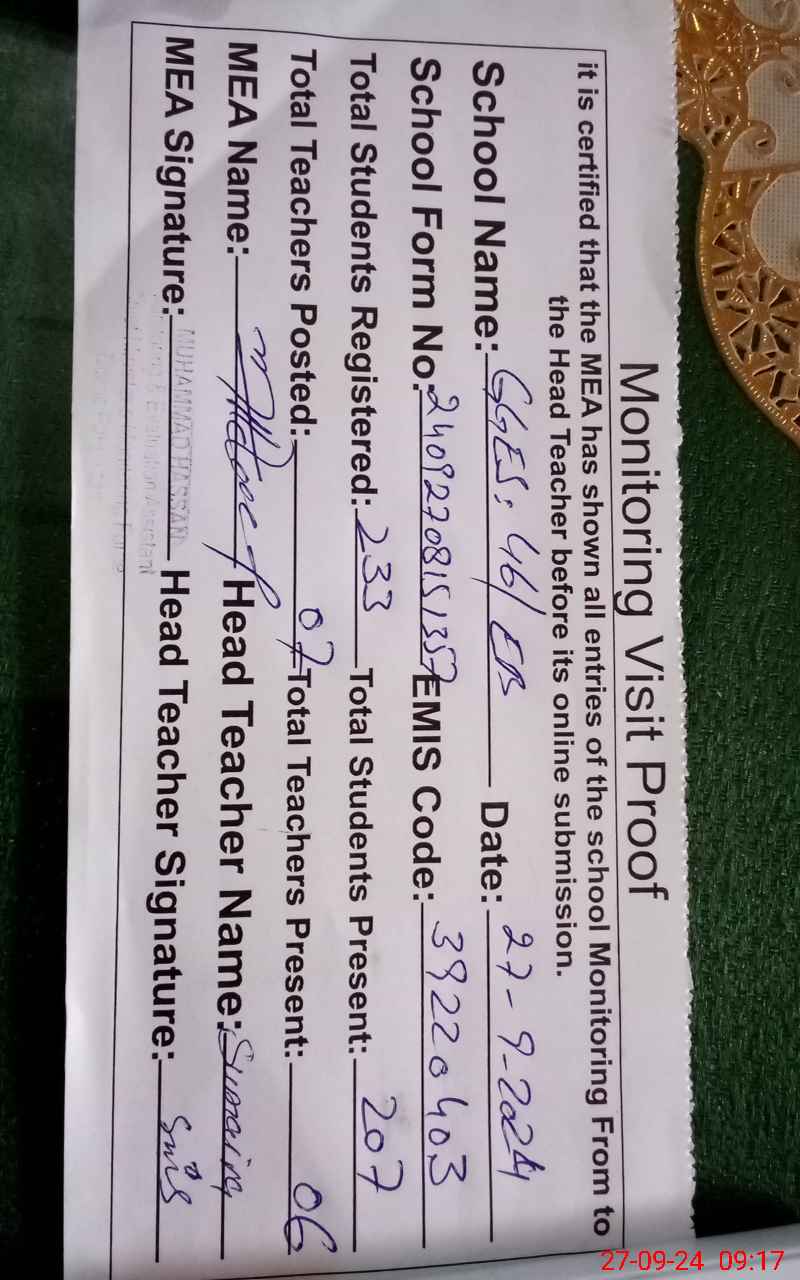 Monitoring Visit Proof
it is certified that the MEA has shown all entries of the school Monitoring From to
the Head Teacher before its online submission.
School Name: GGES: 46/EB Date: 27-9-2024
School Form No. 24092708151357 EMIS Code: 39220403
Total Students Registered: 233 Total Students Present: 207
Total Teachers Posted: 07 Total Teachers Present: 06
MEA Name: Head Teacher Name: Sumaira
MEA Signature: Head Teacher Signature:
MUHAMMAD HASSAN
Evaluation Assistant
27-09-24 09:17